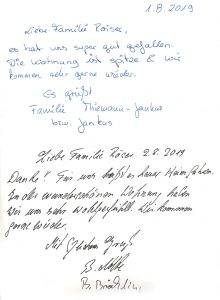 1.8.2019
Liebe Familie Röiser,
es hat uns super gut gefallen.
Die Wohnung ist spitze & wir
kommen sehr gerne wieder.
Es grüßt
Familie Thiemann-Jankus
bzw. Jankus
Liebe Familie Röiser 2.8.2019
Danke! Für uns heißt es heim fahren.
In der wunderschönen Wohnung haben
wir uns sehr wohlgefühlt. Wir kommen
gerne wieder.
Mit Gruß
B.
B.